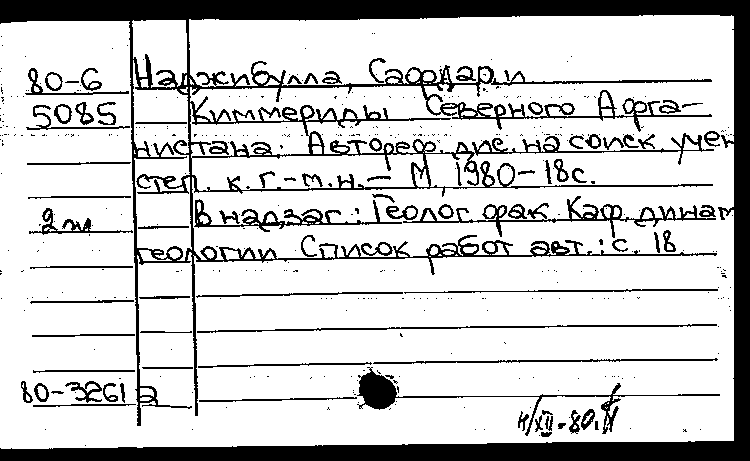 80-6 Наджибулла, Сафдар.и
5085 Киммериды Северного Афга-
нистана: Автореф. дис. на соиск. учен
степ. к. г.-м.н. – М, 1980 – 18с.
2 пл В надзаг: Геолог. фак. Каф. динам
геологии. Список работ авт.: с. 18.
80-3261 а